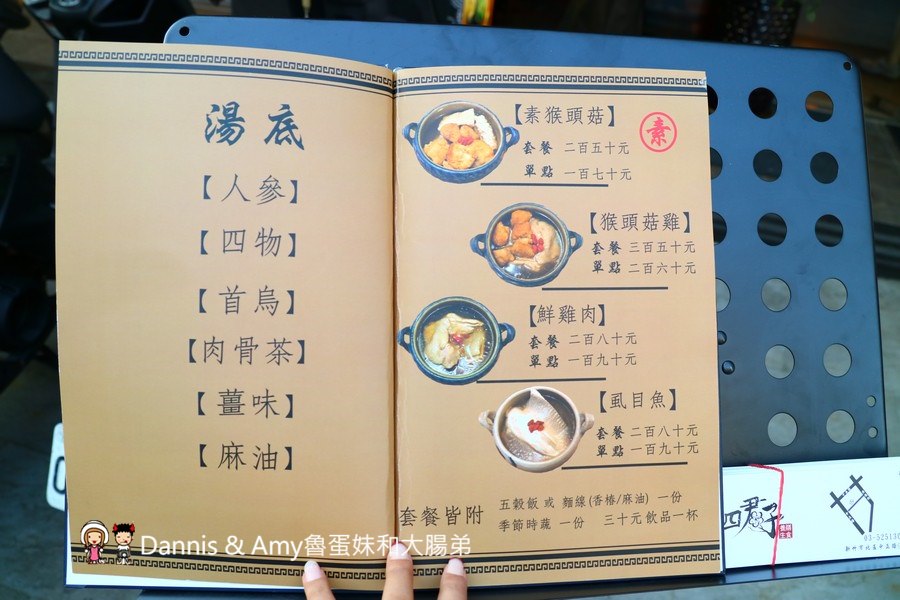 湯底
【人參】
【四物】
【首烏】
【肉骨茶】
【薑味】
【麻油】
【素猴頭菇】
素
套餐 二百五十元
單點 一百七十元
【猴頭菇雞】
套餐 三百五十元
單點 二百六十元
【鮮雞肉】
套餐 二百八十元
單點 一百九十元
【虱目魚】
套餐 二百八十元
單點 一百九十元
套餐皆附
五穀飯 或 麵線(香椿/麻油) 一份
季節時蔬 一份 三十元飲品一杯
Dannis & Amy魯蛋妹和大腸弟
四君子